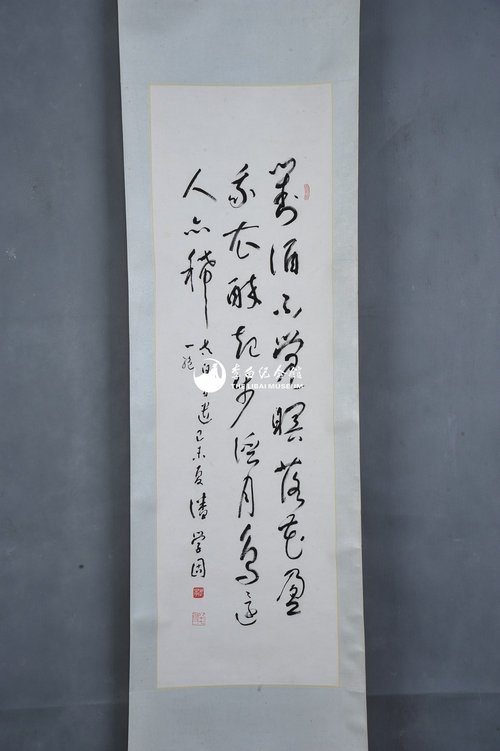 對酒不覺暝落花盈
我衣醉起步溪月鳥還
人亦稀
太白自遣 己未夏 潘学固
一絕
李白纪念馆
THE LIBAI MUSEUM